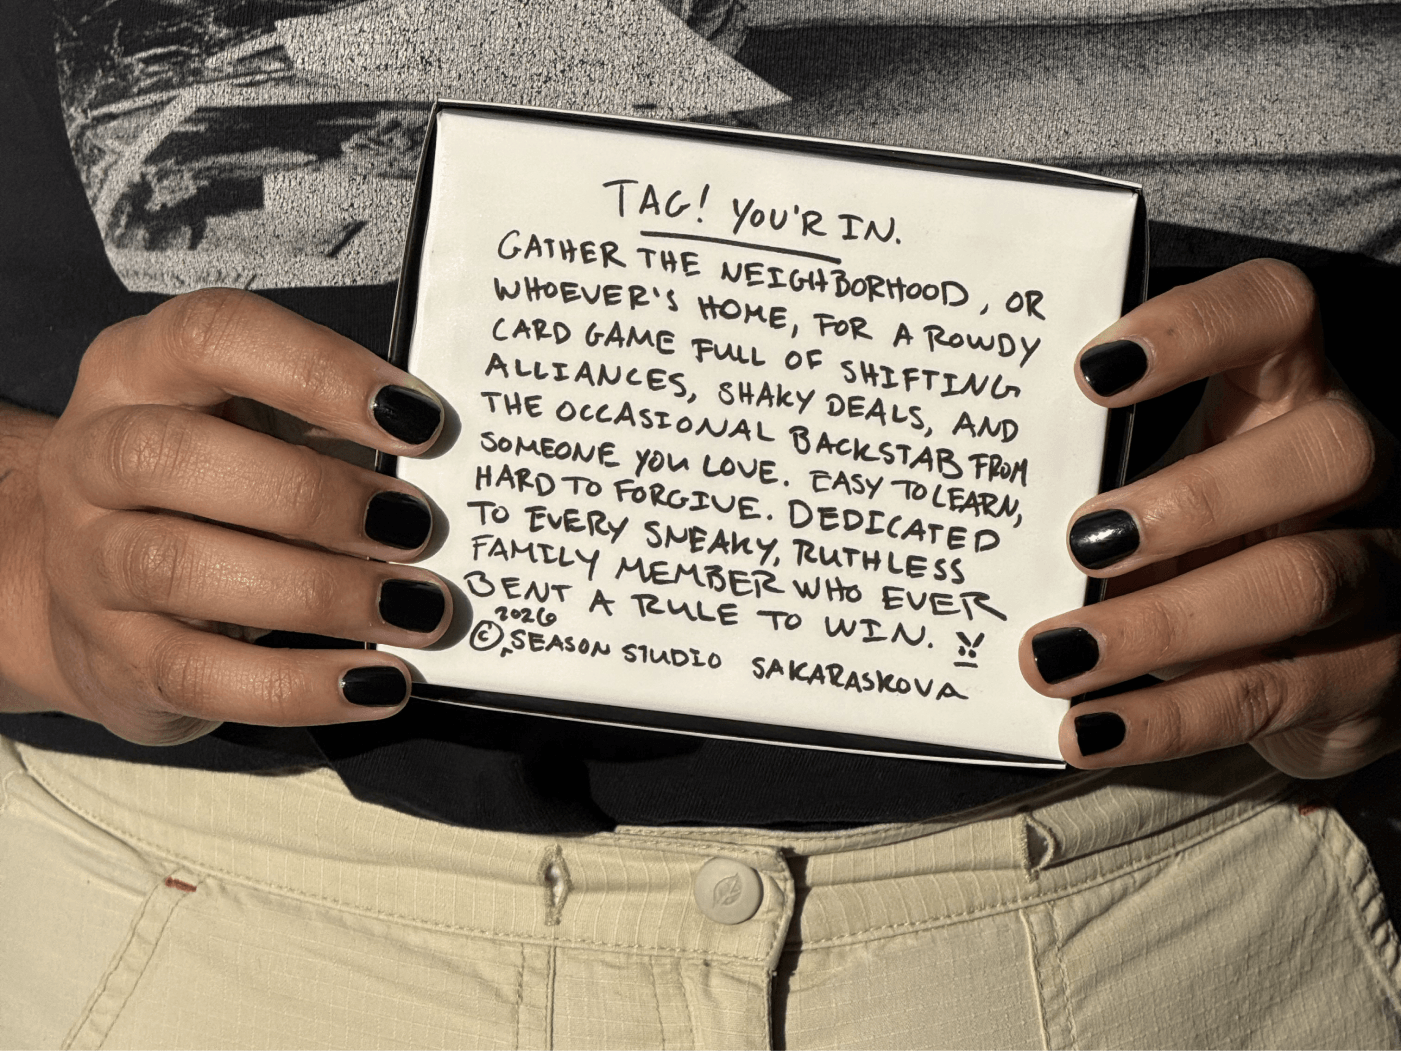 TAG! YOU'R IN.
GATHER THE NEIGHBORHOOD, OR
WHOEVER'S HOME, FOR A ROWDY
CARD GAME FULL OF SHIFTING
ALLIANCES, SHAKY DEALS, AND
THE OCCASIONAL BACKSTAB FROM
SOMEONE YOU LOVE. EASY TO LEARN,
HARD TO FORGIVE. DEDICATED
TO EVERY SNEAKY, RUTHLESS
FAMILY MEMBER WHO EVER
BENT A RULE TO WIN.
2026
© SEASON STUDIO SAKARASKOVA